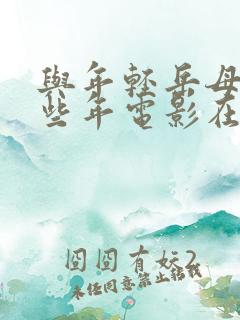 與年輕岳母
些年電影在
囧囧有妖2
未经同意禁止转载